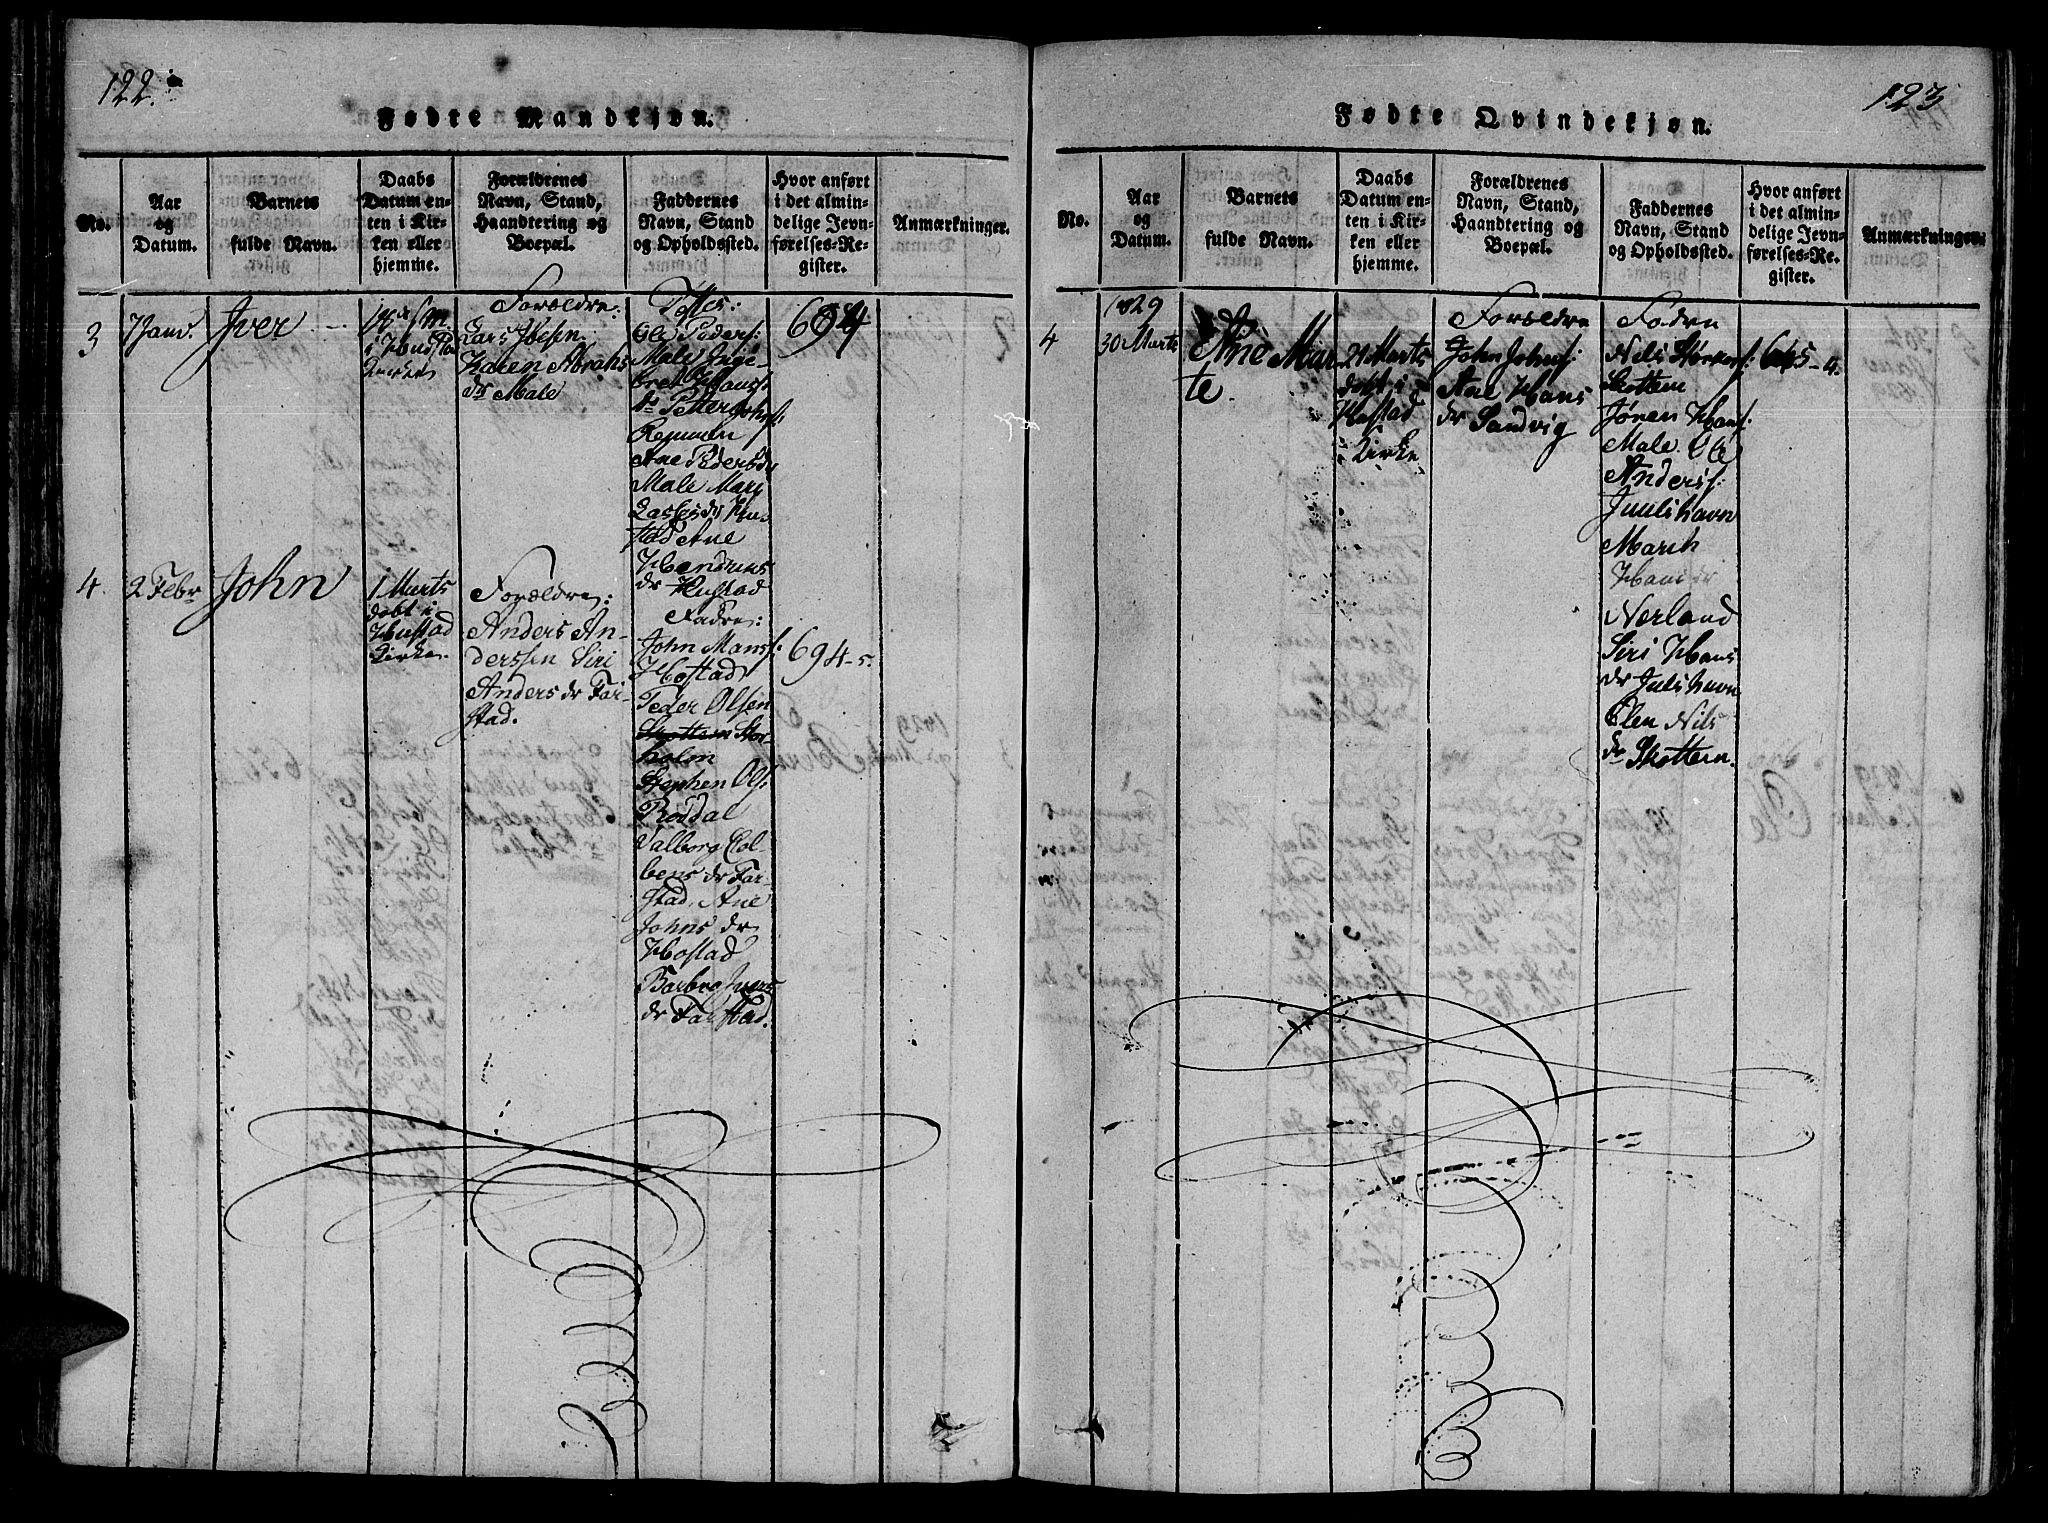 122.
Fødte Mandkjøn.
No.
Aar
og
Datum.
Barnets
fulde Navn.
Daabs
Datum en-
ten i Kir-
ken eller
hjemme.
Forældrenes
Navn, Stand,
Haandtering og
Boepæl.
Faddernes
Navn, Stand
og Opholdssted.
Hvor anført
i det almin-
delige Jevn-
førelses-Re-
gister.
Anmærkninger.
3
Janr.
Iver
i Hustad
Kirke
Forældre:
Lars
Karen Abrahs
dr Male
Ole Peders:
Male Inge-
bret Hanss:
ds Petter Johs:
Ane Pedersdr
Male Mari
Lassesdr Hu-
stad Ane
dr Hustad
4.
2 Febr
John
1 Marts
døbt i
Hustad
Kirke
Forældre:
Anders An-
derssen Siri
Anders dr Far-
stad.
Fadre:
John Hanss:
Hostad
Peder Olsen
Skottem Stor-
holm
Stephen Ols:
Røddal
Valborg Col-
bens dr Far-
stad. Ane
Johns dr
Hostad
Barbro Ivers
dr Farstad.
694-5.
123
Fødte Qvindekjøn.
No.
Aar
og
Datum.
Barnets
fulde Navn.
Daabs
Datum en-
ten i Kir-
ken eller
hjemme.
Forældrenes
Navn, Stand,
Haandtering og
Boepæl.
Faddernes
Navn, Stand
og Opholdssted.
Hvor anført
i det almin-
delige Jevn-
førelses-Re-
gister.
Anmærkninger.
4
1829
30 Marts
Ane Mar-
te.
21 Marts
døbt i
Hustad
Kirke
Forældre
John Johns:
Ane Hans
dr Sandvig
Fadre
Nils
Skottem
Jøren Hans:
Male. Ole
Anders:
Juulshavn
Marith
Hans dr
Nerland
Siri Hans
dr Julshavn
Elen Nils
dr Skottem.
665-4.